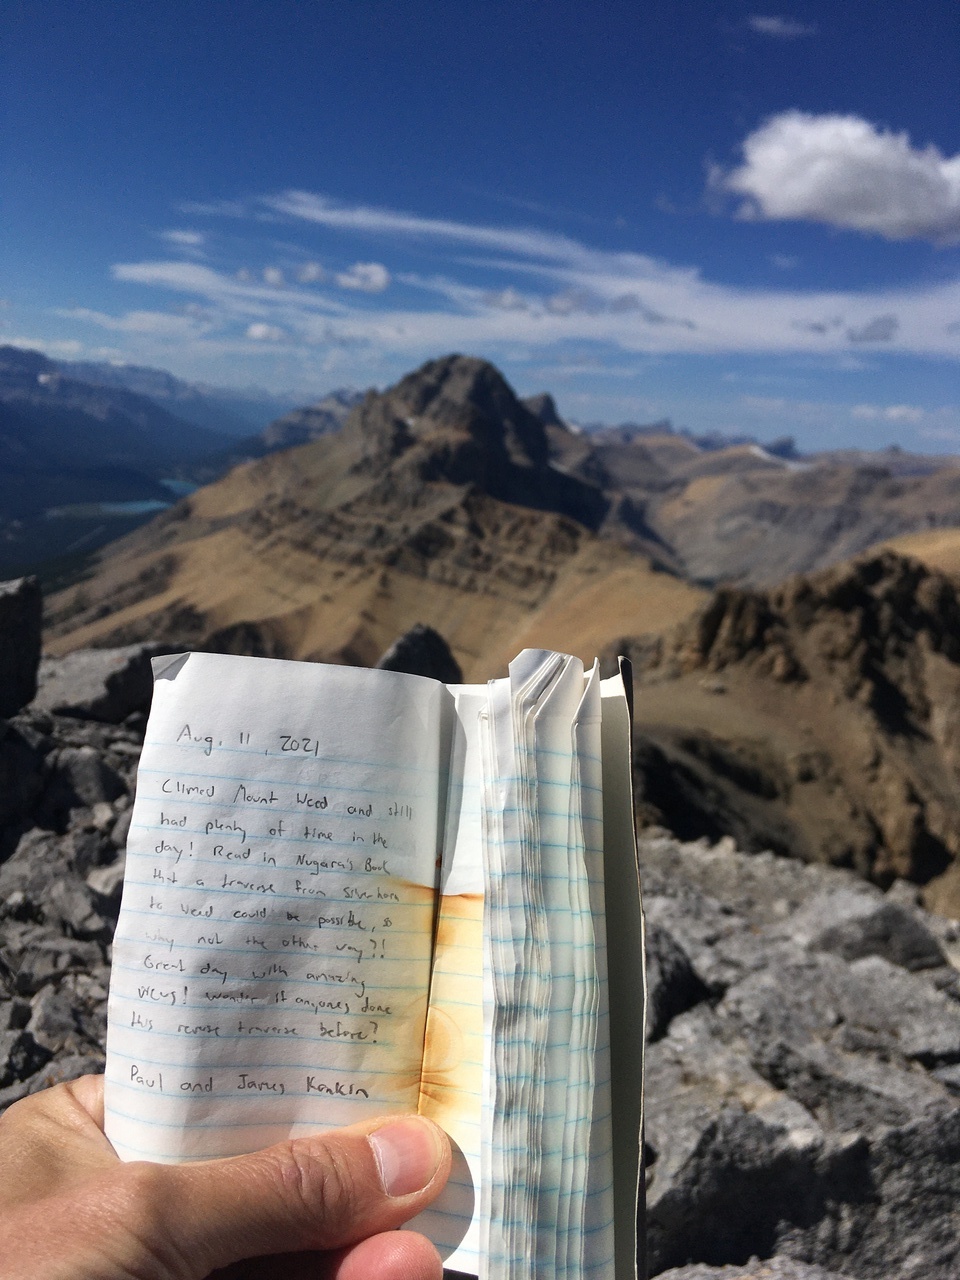 Aug. 11, 2021
Climed Mount Weed and still
had plenty of time in the
day! Read in Nugara's Book
that a traverse from Silverhorn
to Weed could be possible, so
why not the other way?!
Great day with amazing
views! wonder if anyones done
this reverse traverse before?
Paul and James Konkin